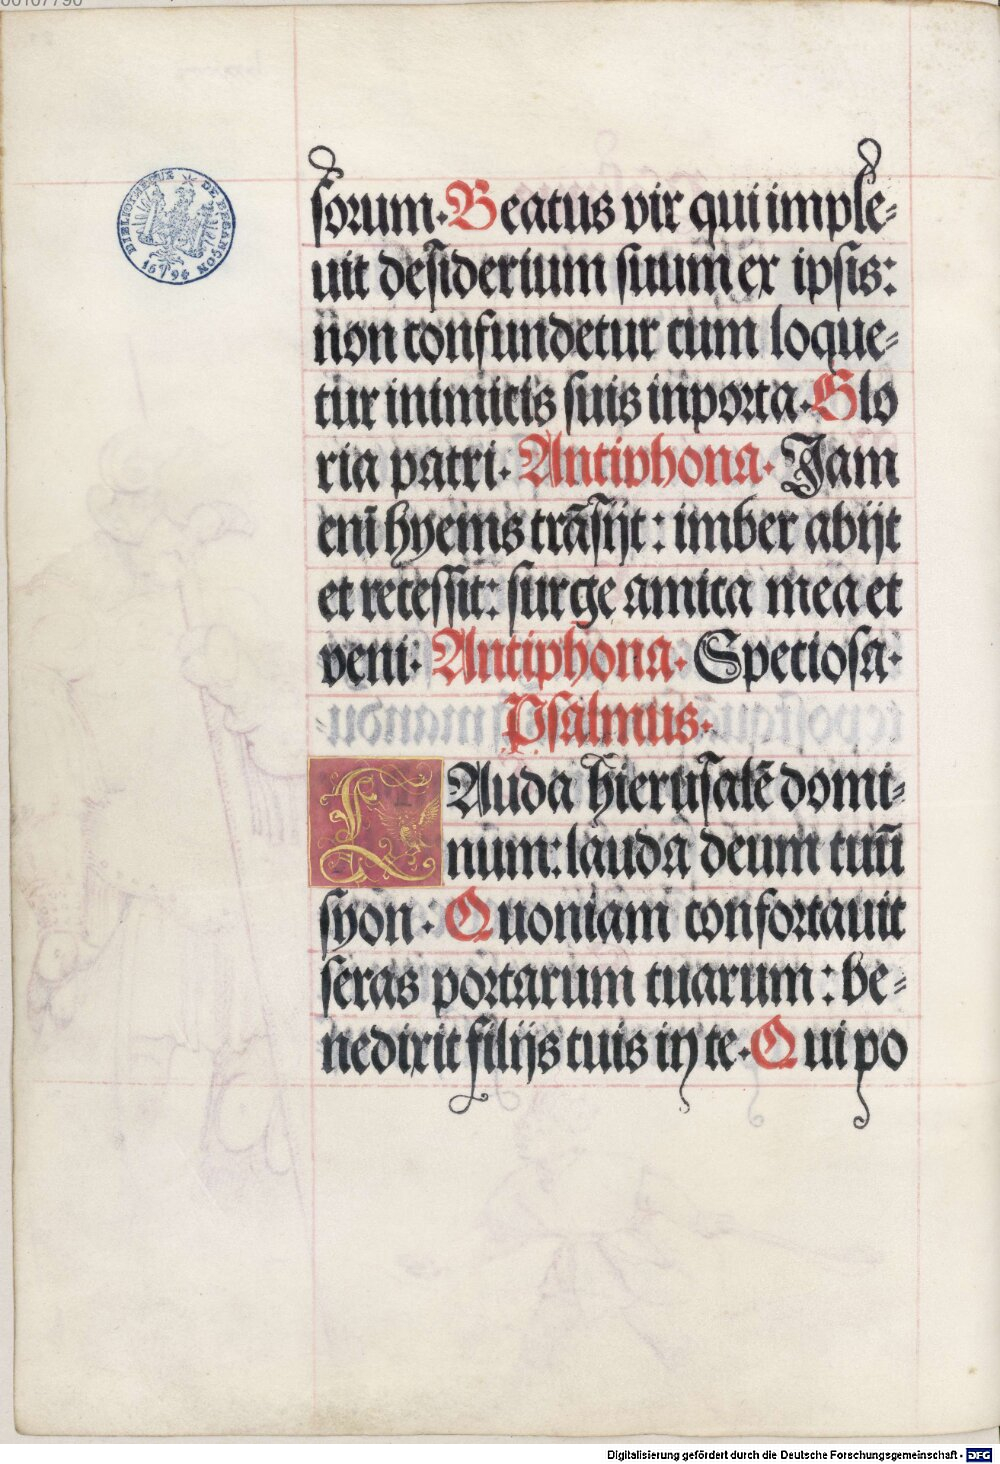 00107790
BIBLIOTHEQUE DE BESANÇON
1694
sorum. Beatus vir qui imple⸗
uit desiderium suum ex ipsis:
non confundetur cum loque⸗
tur inimicis suis in porta. Glo
ria patri. Antiphona. Jam
enī hyems trāsijt: imber abijt
et recessit: surge amica mea et
veni. Antiphona. Speciosa.
Psalmus.
LAuda hierusalē domi⸗
num: lauda deum tuū
syon: Quoniam confortauit
seras portarum tuarum: be⸗
nedixit filijs tuis in te. Qui po
Digitalisierung gefördert durch die Deutsche Forschungsgemeinschaft - DFG